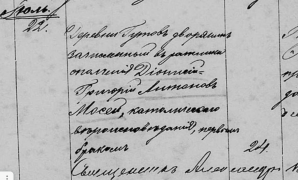 Июль.
22.
Деревни Гутовъ дворянинъ
записанный въ ратники
ополченія Діонисій-
Григорій Антоновъ
Мосей, католическаго
вѣроисповѣданія, первымъ
бракомъ
24
Священникъ Александръ